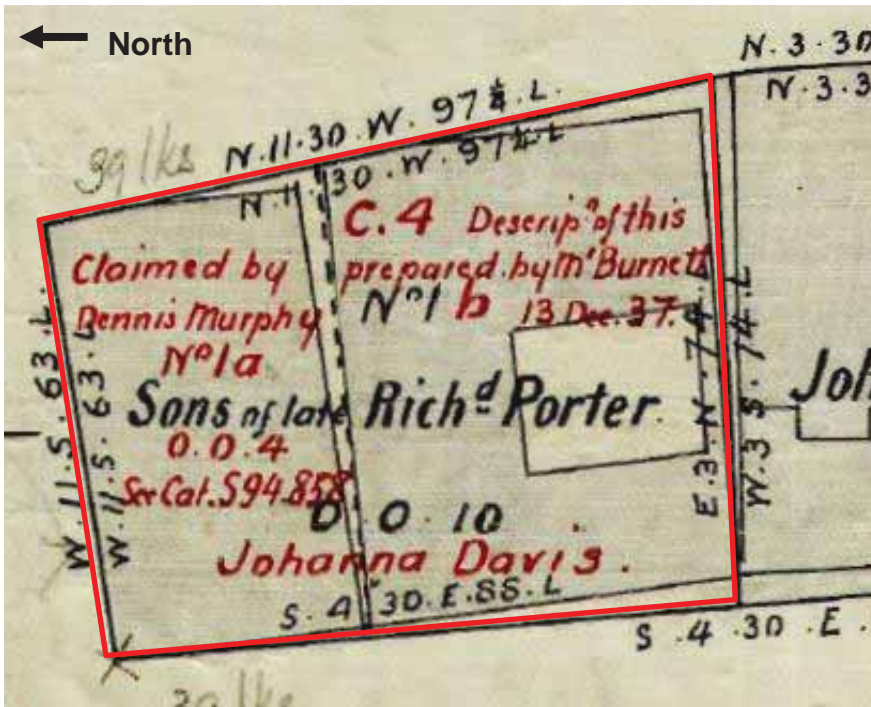 North
N. 3. 30
N. 3. 3
N. 11. 30. W. 97¼. L.
39 lks
N. 11. 30. W. 97¼. L
C. 4 Descripⁿ of this
prepared by Mʳ Burnett
Nº 1 b 13 Dec. 37.
Claimed by
Dennis Murphy
Nº 1a
Sons of late Richᵈ Porter
0. 0. 4
See Cat. S94.858
0. 0. 10
Johanna Davis.
W. 11. S. 63. L.
W. 11. S. 63. L
E. 3. N. 74. L
W. 3 S. 74. L
Joh
S. 4 30. E. 88. L
S. 4. 30. E.
39 lks